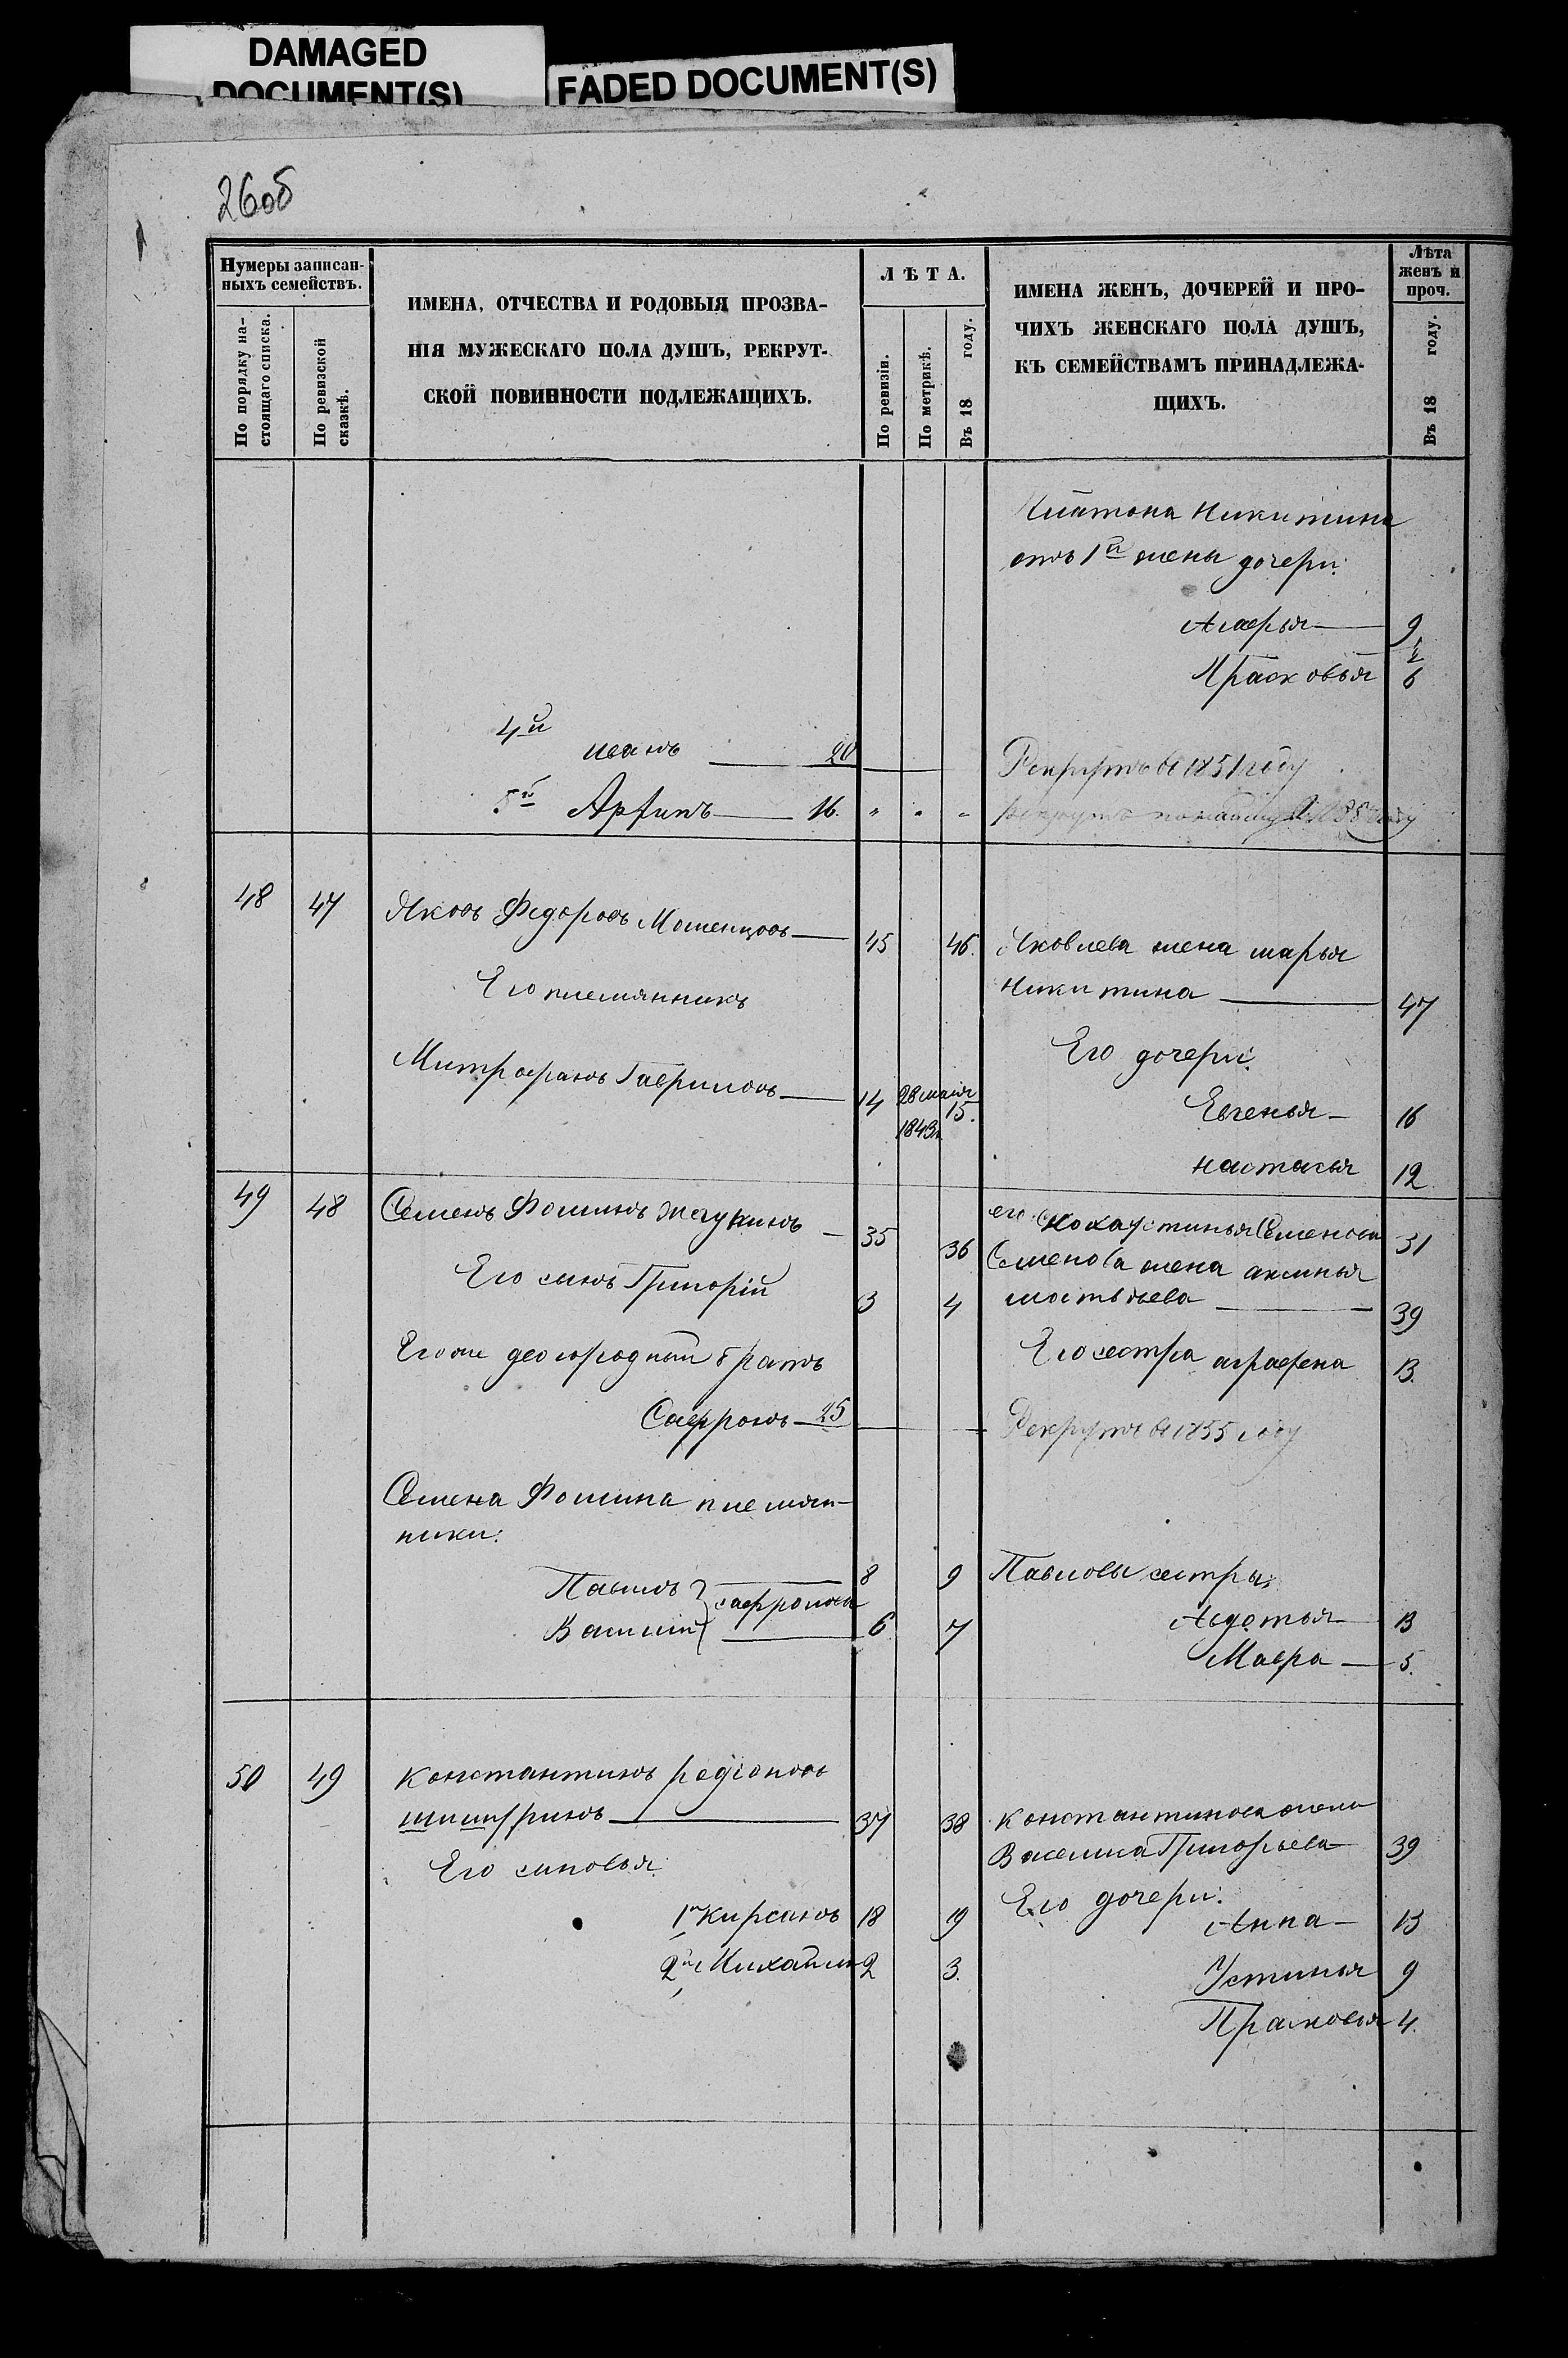 DAMAGED
DOCUMENT(S)
FADED DOCUMENT(S)
26об
Нумеры записан-
ныхъ семействъ.
По порядку на-
стоящаго списка.
По ревизской
сказкѣ.
ИМЕНА, ОТЧЕСТВА И РОДОВЫЯ ПРОЗВА-
НІЯ МУЖЕСКАГО ПОЛА ДУШЪ, РЕКРУТ-
СКОЙ ПОВИННОСТИ ПОДЛЕЖАЩИХЪ.
ЛѢТА.
По ревизіи.
По метрикѣ.
Въ 18 году.
ИМЕНА ЖЕНЪ, ДОЧЕРЕЙ И ПРО-
ЧИХЪ ЖЕНСКАГО ПОЛА ДУШЪ,
КЪ СЕМЕЙСТВАМЪ ПРИНАДЛЕЖА-
ЩИХЪ.
Лѣта
женъ и
проч.
Въ 18 году.
Платона Никитина
отъ 1й жены дочери:
Марья 9
Прасковья 6
4й
Иванъ 20 Рекрутъ въ 1851 году
5й Архипъ 16. " " " рекрутъ
48 47 Яковъ Федоровъ Мошенцовъ 45 46. Яковлева жена Марья
Никитина 47
Его племянникъ
Его дочери:
Митрофанъ Гавриловъ 14 28 мая 1843г. 15.
Евгенья 16
Настасья 12
49 48 Семенъ Фоминъ 35 36
его сноха Устинья Семенова 31
Семенова жена Аксинья
Матвѣева 39
Его сынъ Григорій 3 4
Его сестра Аграфена 13.
Его же двоюродный братъ
Сафронъ 25 Рекрутъ въ 1855 году
Семена Фомина племян-
ники:
Павелъ 8 9 Павловы сестры:
Сафроновы
Василій 6 7 Авдотья 13
Мавра 5.
50 49 Константинъ Родіоновъ
37 38 Константинова жена
Василиса Григорьева 39
Его сыновья:
Его дочери:
1й Кирсанъ 18 19 Анна 13
2й Михайла 2 3. Устинья 9
Прасковья 4.